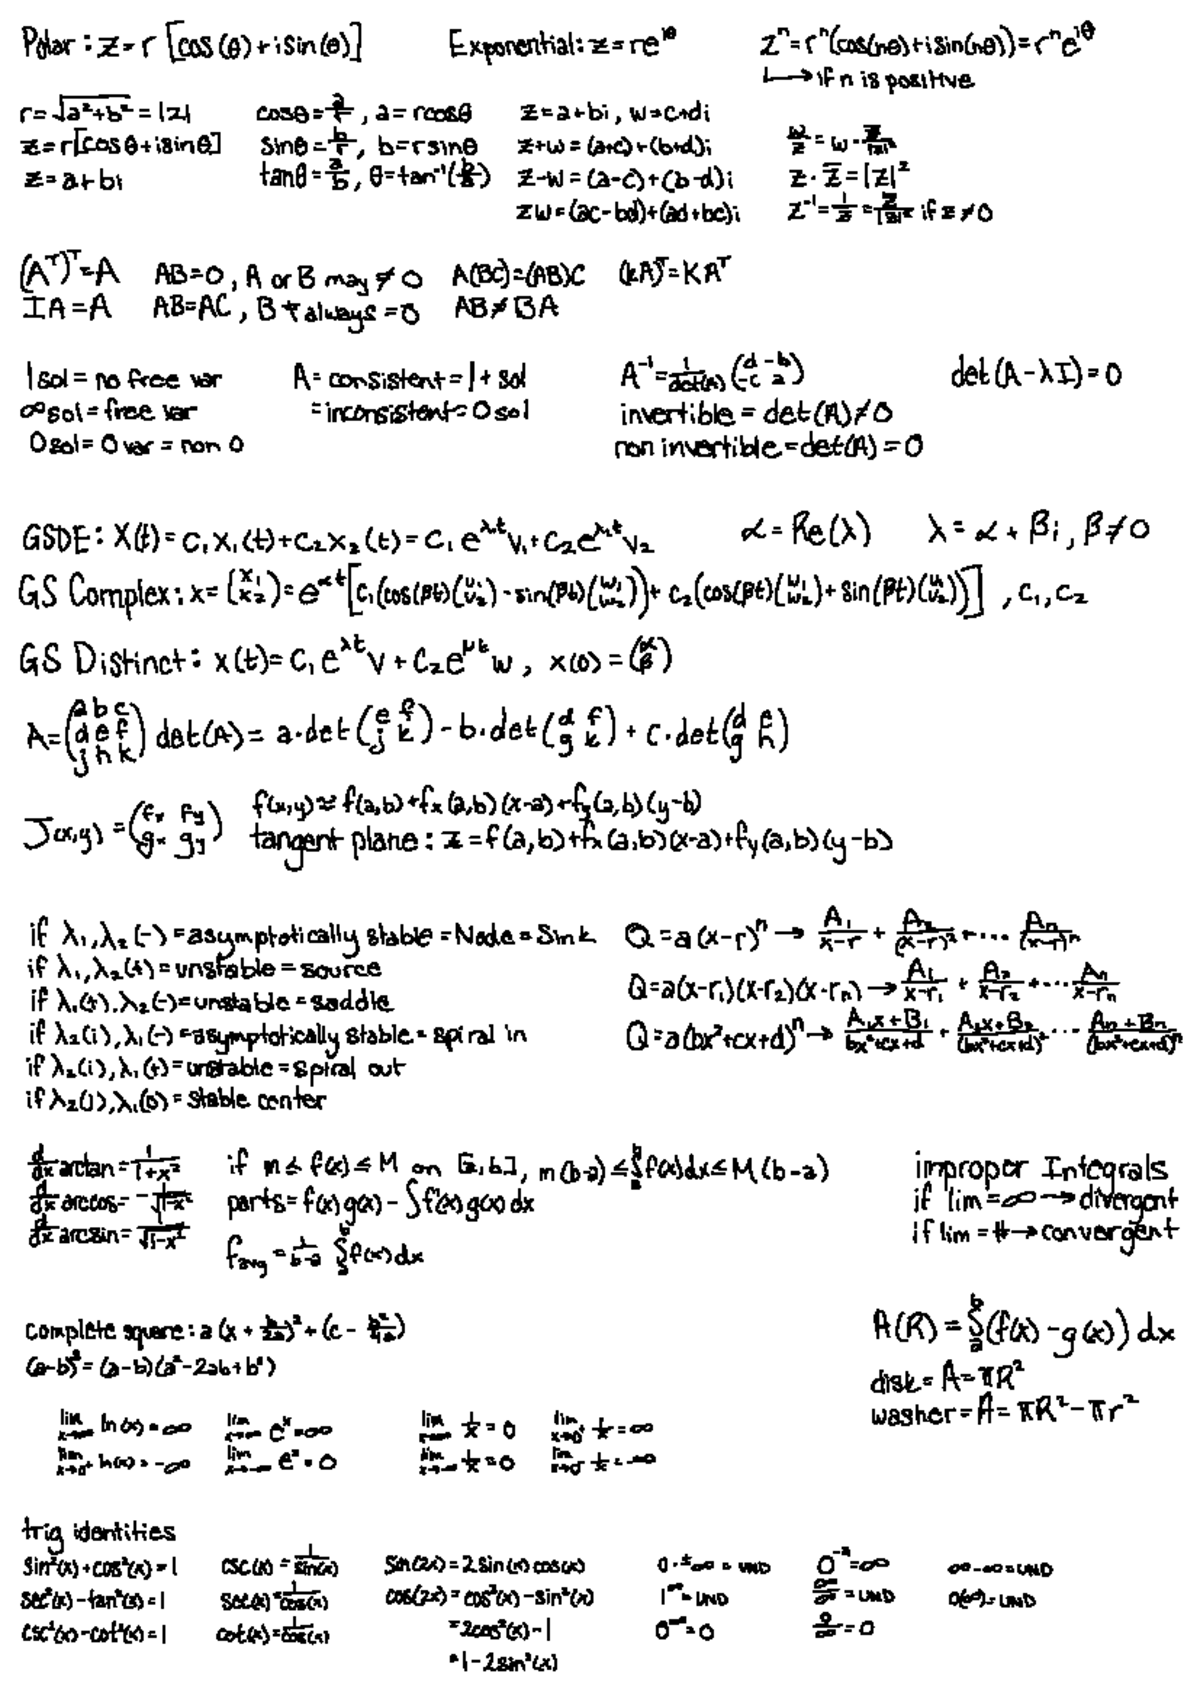 Polar: z = r [cos(θ) + i sin(θ)]   Exponential: z = re^iθ   z^n = r^n(cos(nθ) + i sin(nθ)) = r^n e^iθ
↳ if n is positive
r = √(a²+b²) = |z|   cosθ = a/r, a = r cosθ   z = a+bi, w = c+di
z = r[cosθ + i sinθ]   sinθ = b/r, b = r sinθ   z+w = (a+c)+(b+d)i   w/z = w · z̄/|z|²
z = a+bi   tanθ = a/b, θ = tan⁻¹(b/a)   z-w = (a-c)+(b-d)i   z · z̄ = |z|²
zw = (ac-bd)+(ad+bc)i   z⁻¹ = 1/z = z̄/|z|² if z ≠ 0
(A^T)^T = A   AB = 0, A or B may ≠ 0   A(BC) = (AB)C   (kA)^T = KA^T
IA = A   AB = AC, B ≠ always = 0   AB ≠ BA
1 sol = no free var   A = consistent = 1+ sol   A⁻¹ = 1/det(A) (d -b; -c a)   det(A-λI) = 0
∞ sol = free var   = inconsistent = 0 sol   invertible = det(A) ≠ 0
0 sol = 0 var = non 0   non invertible = det(A) = 0
GSDE: X(t) = c₁x₁(t) + c₂x₂(t) = c₁e^λ₁t v₁ + c₂e^λ₂t v₂   α = Re(λ)   λ = α + βi, β ≠ 0
GS Complex: x = (x₁; x₂) = e^αt [c₁(cos(βt)(u₁; u₂) - sin(βt)(w₁; w₂)) + c₂(cos(βt)(w₁; w₂) + sin(βt)(u₁; u₂))], c₁, c₂
GS Distinct: x(t) = c₁e^λt v + c₂e^μt w, x(0) = (α; β)
A = (a b c; d e f; j h k) det(A) = a·det(e f; j k) - b·det(d f; g k) + c·det(d e; g h)
J(x,y) = (fx fy; gx gy)   f(x,y) ≈ f(a,b) + fx(a,b)(x-a) + fy(a,b)(y-b)
tangent plane: z = f(a,b) + fx(a,b)(x-a) + fy(a,b)(y-b)
if λ₁, λ₂(-) = asymptotically stable = Node = Sink   Q = a(x-r)^n → A₁/(x-r) + A₂/(x-r)² + ... An/(x-r)^n
if λ₁, λ₂(+) = unstable = source
if λ₁(+), λ₂(-) = unstable = saddle   Q = a(x-r₁)(x-r₂)(x-rn) → A₁/(x-r₁) + A₂/(x-r₂) + ... An/(x-rn)
if λ₂(i), λ₁(-) = asymptotically stable = spiral in   Q = a(bx²+cx+d)^n → (A₁x+B₁)/(bx²+cx+d) + (A₂x+B₂)/(bx²+cx+d)² ... (An+Bn)/(bx²+cx+d)^n
if λ₂(i), λ₁(+) = unstable = spiral out
if λ₂(i), λ₁(0) = stable center
d/dx arctan = 1/(1+x²)   if m ≤ f(x) ≤ M on [a,b], m(b-a) ≤ ∫ₐᵇ f(x)dx ≤ M(b-a)   improper Integrals
d/dx arccos = -1/√(1-x²)   parts = f(x)g(x) - ∫f'(x)g(x)dx   if lim = ∞ → divergent
d/dx arcsin = 1/√(1-x²)   f avg = 1/(b-a) ∫ₐᵇ f(x)dx   if lim = # → convergent
complete square: a(x + b/2a)² + (c - b²/4a)   A(R) = ∫ₐᵇ (f(x) - g(x)) dx
(a-b)³ = (a-b)(a²-2ab+b²)   disk = A = πR²
washer = A = πR² - πr²
lim x→∞ ln(x) = ∞   lim x→∞ e^x = ∞   lim x→∞ 1/x = 0   lim x→0⁺ 1/x = ∞
lim x→0⁺ ln(x) = -∞   lim x→-∞ e^x = 0   lim x→-∞ 1/x = 0   lim x→0⁻ 1/x = -∞
trig identities
sin²(x) + cos²(x) = 1   csc(x) = 1/sin(x)   sin(2x) = 2sin(x)cos(x)   0·±∞ = UND   0^-∞ = ∞   ∞-∞ = UND
sec²(x) - tan²(x) = 1   sec(x) = 1/cos(x)   cos(2x) = cos²(x) - sin²(x)   1^∞ = UND   ∞/∞ = UND   0(∞) = UND
csc²(x) - cot²(x) = 1   cot(x) = 1/cos(x)   = 2cos²(x) - 1   0^∞ = 0   0/∞ = 0
= 1 - 2sin²(x)